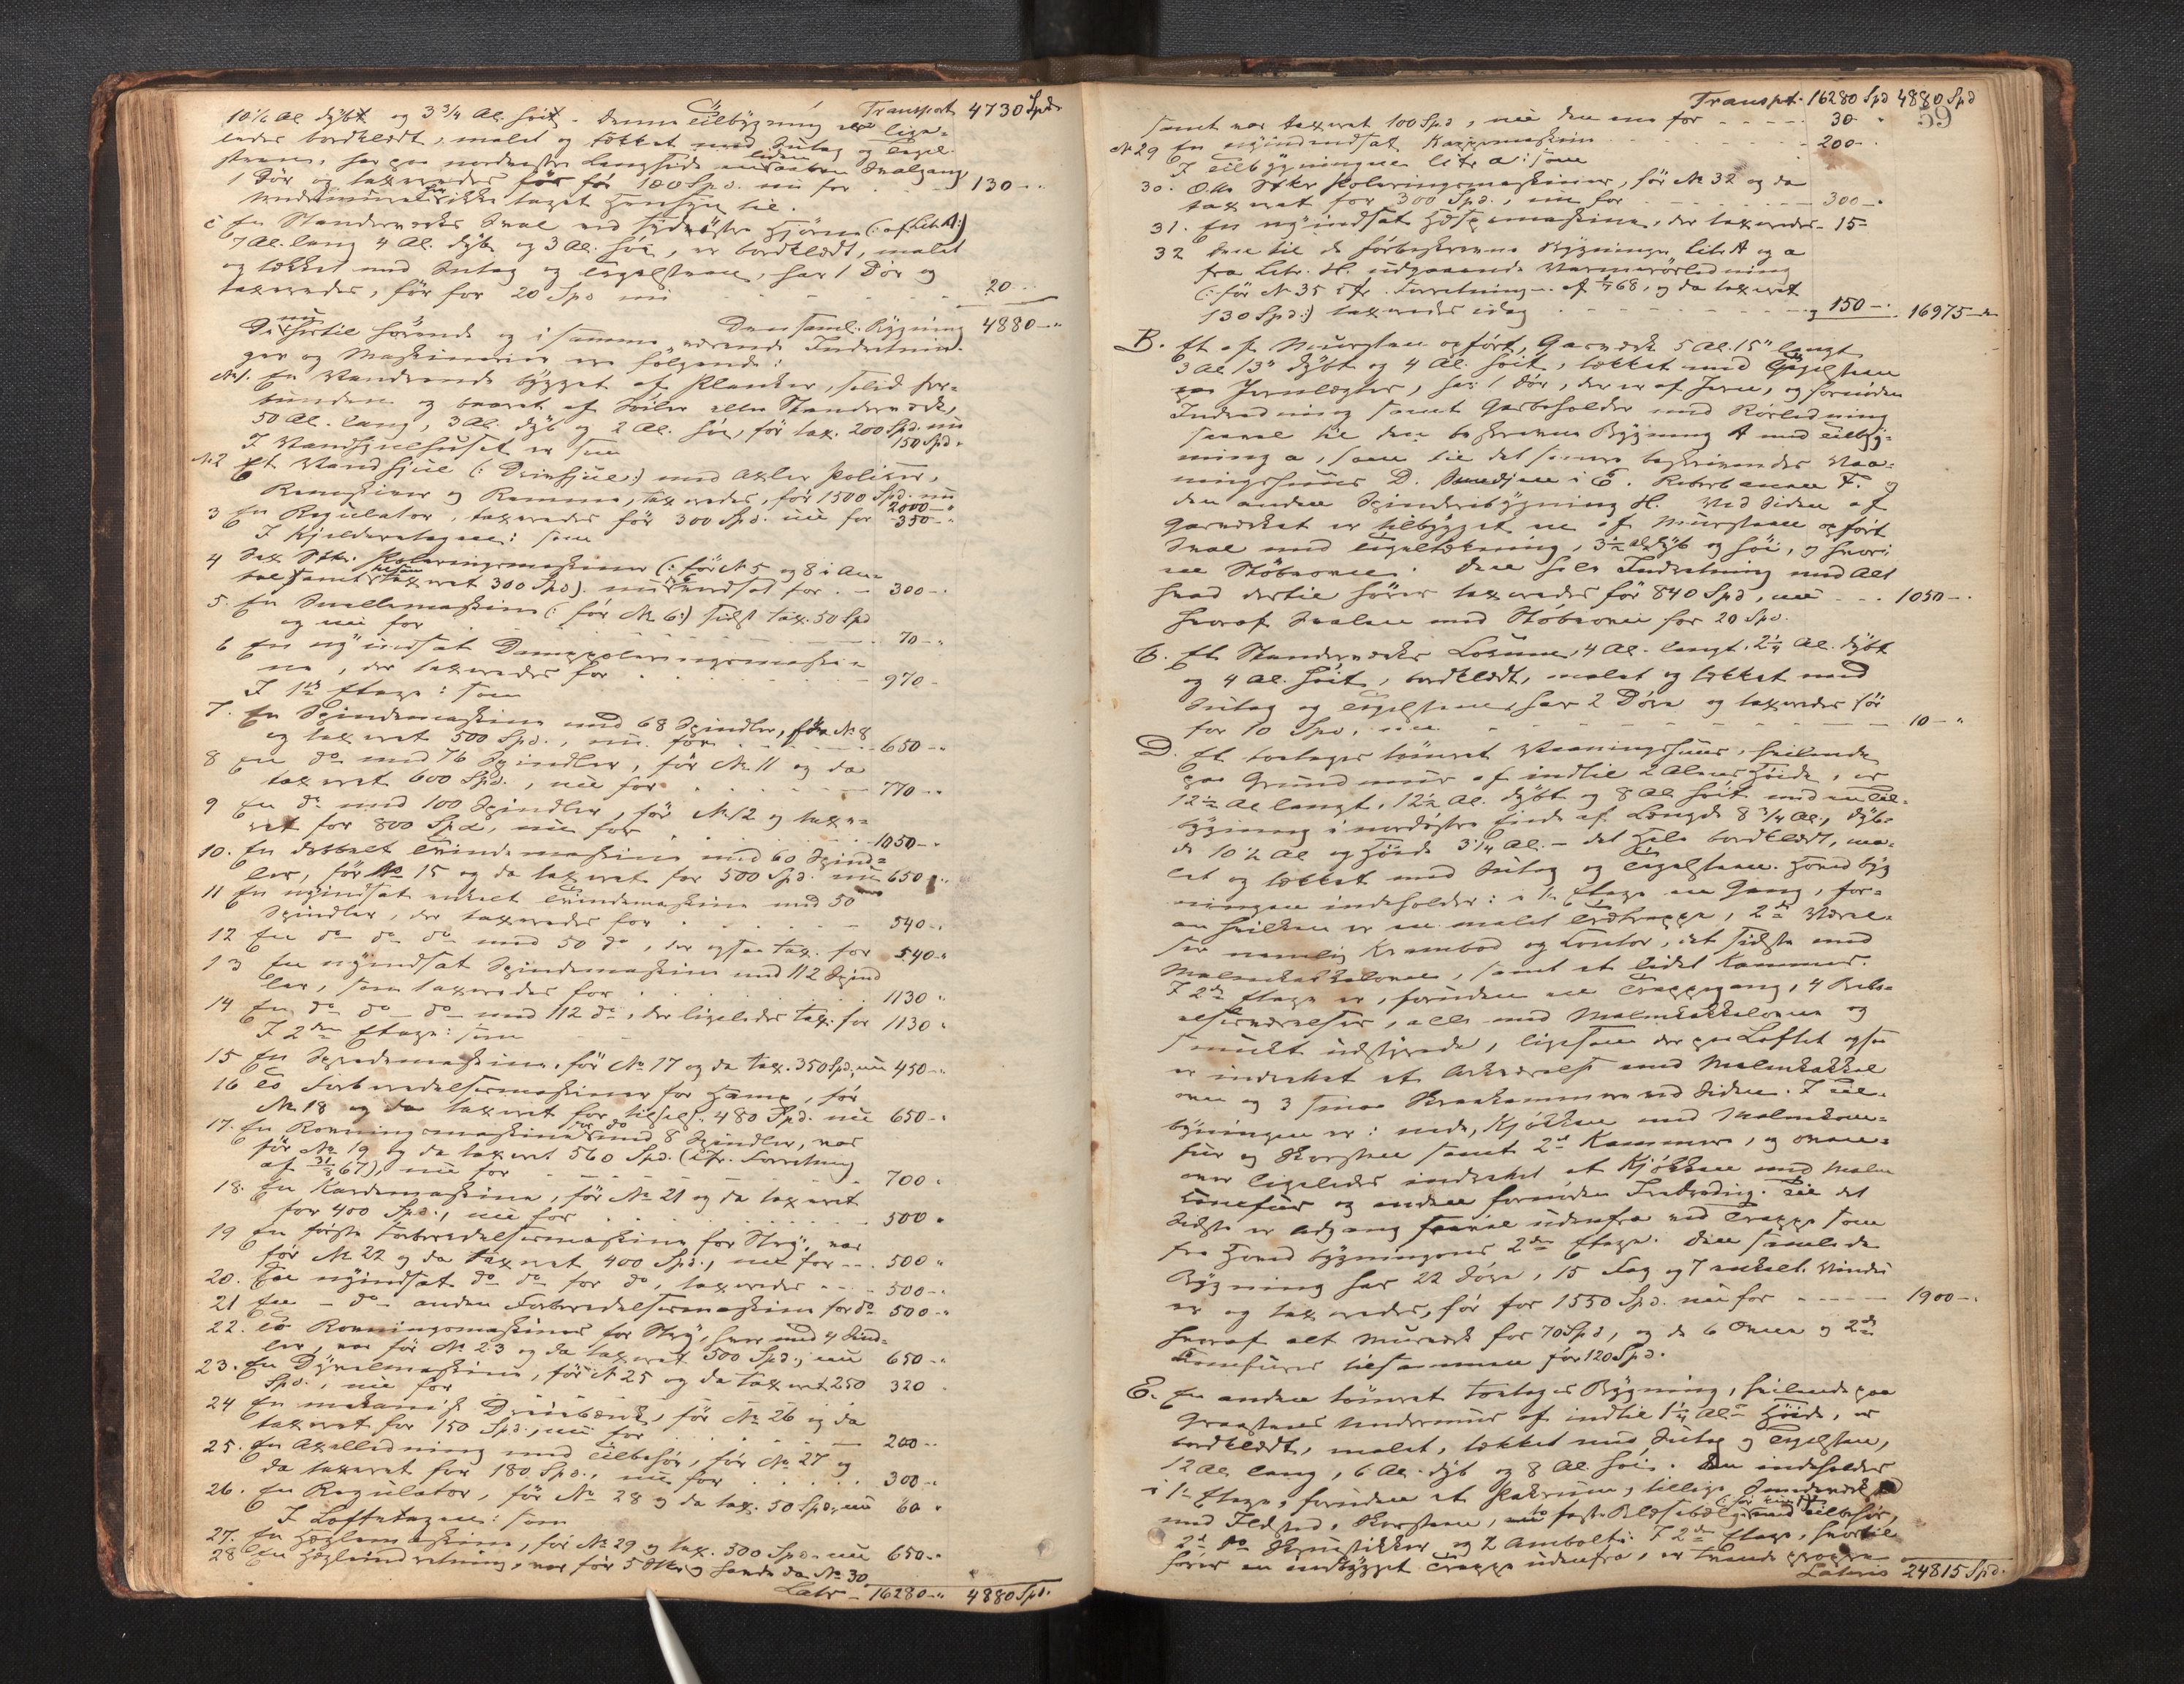 Transport 4730 Spd
10½ Al dybt og 3¾ Al. høit. Denne Tilbygning er lige-
ledes bordklædt, malet og tækket med Sutag og Tegel-
steen, har paa nordøstre Langside en liden aaben Svalgang
1 Dør og taxeredes før for 100 Spd. nu for 130 -
ikke taget Hensyn til.
c En Standerværks Sval ved sydøstre Hjørne (: af Litr A:)
7 Al. lang 4 Al. dyb og 3 Al. høi, er bordklædt, malet
og tækket med Sutag og Tegelsteen, har 1 Dør og
taxeredes, før for 20 Spd nu 20 -
Den saml. Bygning 4880 -
De nu hertil hørende og i samme værende Indretnin-
ger og Maskinerier ere følgende:
No 1. En Vandrende bygget af Planker, solid for-
bunden og baaret af Søiler eller Standerværk,
50 Al. lang, 3 Al. dyb og 2 Al. høi, før tax. 200 Spd. nu
150 Spd.
I Vandhjulhuset er som
No 2 Et Vandhjul (: Drivhjul:) med Axler Poliser,
Remskiver og Remme, taxeredes, før 1500 Spd. nu
2000 -
3 En Regulator, taxeredes før 300 Spd. nu for 350 -
I Kjelderetagen: som
4 Sex Stkr. Poleringsmaskiner (: før No 5 og 8 i An-
tal samt taxeret 300 Spd). nu for 300 -
5. En Snellemaskine (: før No 6:) sidst tax. 50 Spd
og nu for 70 -
6 En nyindsat Damppoleringsmaski-
ne, der taxeredes for 970 -
I 1ste Etage: som
7. En Spindemaskine med 68 Spindler, før No 8
og taxeret 500 Spd., nu for 650 -
8 en do med 76 Spindler, før No 11 og da
taxeret 600 Spd., nu for 770 -
9 En do med 100 Spindler, før No 12 og taxe-
ret for 800 Spd, nu for 1050 -
10. En dobbelt Tvindemaskine med 60 Spind-
ler, før No 15 og da taxeret for 500 Spd. nu 650 -
11 En nyindsat enkelt Tvindemaskine med 50
Spindler, der taxeredes for 540 -
12 En do do do med 50 do, der ogsaa tax. for 540 -
13 En nyindsat Spindemaskine med 112 Spind
ler, som taxeredes for 1130 -
14 En do do do med 112 do, der ligeledes tax. for 1130 -
I 2den Etage: som
15 En Spredemaskine, før No 17 og da tax. 350 Spd, nu 450 -
16 To Forberedelsesmaskiner for Hamp, før
No 18 og da taxeret for tilsels. 480 Spd. nu 650 -
17. En Rovningsmaskine for do med 8 Spindler, var
før No 19 og da taxeret 560 Spd. (cfr. Forretning
af 31/8 67), nu for 700 -
18. En Kardemaskine, før No 21 og da taxeret
for 400 Spd., nu for 500 -
19 En første Forberedelsesmaskine for Stry, var
før No 22 og da taxeret 400 Spd., nu for 500 -
20. En nyindsat do do for do, taxeredes 500 -
21 En - do - anden Forberedelsesmaskine for do 500 -
22. To Rovningsmaskiner for Stry, hver med 4 Spind-
ler, var før No 23 og da taxeret 500 Spd., nu 650 -
23. En Djevelmaskine, før No 25 og da taxeret 250
Spd., nu for 320 -
24 En mekanisk Dreiebænk, før No 26 og da
taxeret for 150 Spd., nu for 200 -
25. En Axelledning med Tilbehør, før No 27 og
da taxeret for 180 Spd., nu for 300 -
26. En Regulator, før No 28 og da tax. 50 Spd, nu 60 -
I Loftetagen: som
27. En Heglemaskine, før No 29 og tax. 500 Spd. nu 650 -
28 En Heglindretning, var før 5 Stkr. og havde da No 30
Latr - 16280 - 4880 Spd.
59
Transpt. 16280 Spd 4880 Spd
samt var taxeret 100 Spd, nu den ene for 30 -
No 29 En nyindsat Karpemaskine 200 -
I Tilbygningen litr a: som
30. Otte Stkr Poleringsmaskiner, før No 32 og da
taxeret for 300 Spd., nu for 300 -
31. En nyindsat Haspemaskine, der taxeredes 15 -
32 Den til de førbeskrevne Bygninger Litr A og a
fra Litr. H. udgaaende Varmerørledning
(: før No 35 cfr. Forretning af 68, og da taxeret
130 Spd:) taxeredes idag 150 - 16975 -
B. Et af Muursteen opført, Gasværk 5 Al. 15" langt
3 Al 13" dybt og 4 Al. høit, tækket med Tegelsteen
paa Jernlægter, har 1 Dør, der er af Jern, og foruden
Indredning samt Gasbeholder med Rørledning
saavel til den beskrevne Bygning A med Tilbyg-
ning a, som til det senere beskrivendes Vaa-
ningshuus D. Smedjen i E. Reberbanen F. og
den anden Spinderibygning H. Ved Siden af
Gasværket er tilbygget en af Muursteen opført
Sval med Tegeltækning, 3½ Al. dyb og høi, og hvori
en Støbeovn. Den hele Indretning med Alt
hvad dertil hører taxeredes før 840 Spd, nu 1050 -
hvoraf Svalen med Støbeovn for 20 Spd.
C. Et Standerværks Locum, 4 Al. langt, 2¼ Al. dybt
og 4 Al. høit, bordklædt, malet og tækket med
Sutag og Tegelsteen har 2 Døre og taxeredes før
for 10 Spd, nu 10 -
D. Et toetages tømret Vaaningshuus, hvilende
paa Grundmuur af indtil 2 Alens Høide, er
12½ Al langt, 12½ Al. dybt og 8 Al høit med en Til-
bygning i nordøstre Ende af Længde 8¾ Al., Dyb-
de 10½ Al og Høide 3¼ Al. - det Hele bordklædt, ma-
let og tækket med Sutag og Tegelsteen. Hovedbyg
ningen indeholder: i 1ste Etage en Gang, for-
an hvilken er en malet Trætrappe, 2de Værel-
ser nemlig Krambod og Contor, det sidste med
Malmkakkelovn, samt et lidet Kammer.
I 2den Etage er, foruden en Trappegang, 4 Bebo-
elsesværelser, alle med Malmkakkelovne og
smukt udstyrede, ligesom der paa Loftet ogsaa
er indredet et Arkværelse med Malmkakkel
ovn og 3 smaa Skraakammere ved Siden. I Til-
bygningen er: nede, Kjøkken med Malmkom-
fur og Skorsteen samt 2de Kammere, og oven-
over ligeledes indredet et Kjøkken med Malm
komfur og anden fornøden Indredning. Til det
Sidste er Adgang saavel udenfra ved Trappe som
fra Hovedbygningens 2den Etage. Den samlede
Bygning har 22 Døre, 15 Fag og 7 enkelt. Vindu
er og taxeredes, før for 1550 Spd. nu for 1900 -
hvoraf alt Murværk for 70 Spd, og de 6 Ovne og 2de
Komfurer tilsammen for 120 Spd.
E. En anden tømret toetages Bygning, hvilende paa
Graasteens Undermuur af indtil 1¼ Al. Høide, er
bordklædt, malet, tækket med Sutag og Tegelsteen,
12 Al lang, 6 Al. dyb og 8 Al. høi. Den indeholder
i 1ste Etage, foruden et Pakrum, tillige Smedeværksted
med Ildsted, Skorsteen, to faste Blæsebælge med Tilbehør,
2de Skruestikker og 2 Ambolte. I 2den Etage, hvortil
fører en ombygget Trappe udenfra, er
Lateris 24815 Spd.